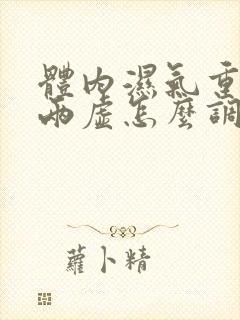 體內濕氣重
兩虛怎麼調
蘿卜精